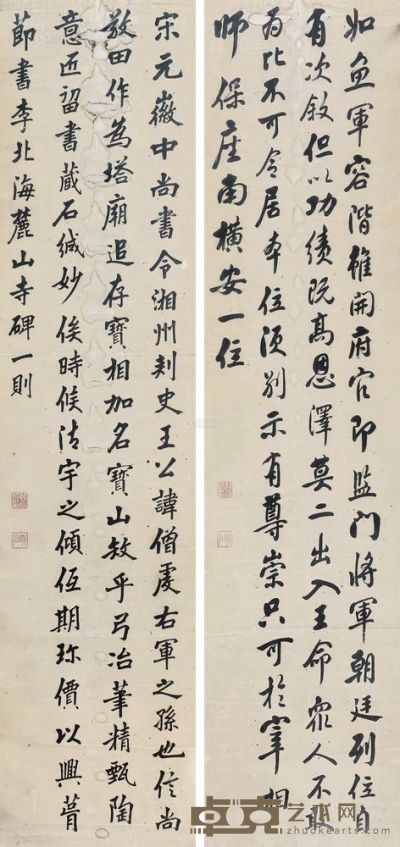 如魚軍容階雖開府官即监门將軍朝廷列位自
有次敘但以功績既高恩澤莫二出入王命眾人不敢
為比不可令居本位須別示有尊崇只可於宰相
師保座南橫安一位
宋元徽中尚書令湘州刾史王公諱僧虔右軍之孫也信尚
敬田作為塔廟追存寶相加名寶山敘乎弓冶筆精甄陶
意匠留書藏石緘妙俟時候法宇之傾低期珎價以興葺
節書李北海麓山寺碑一則
卓克艺术网
zhuokearts.com